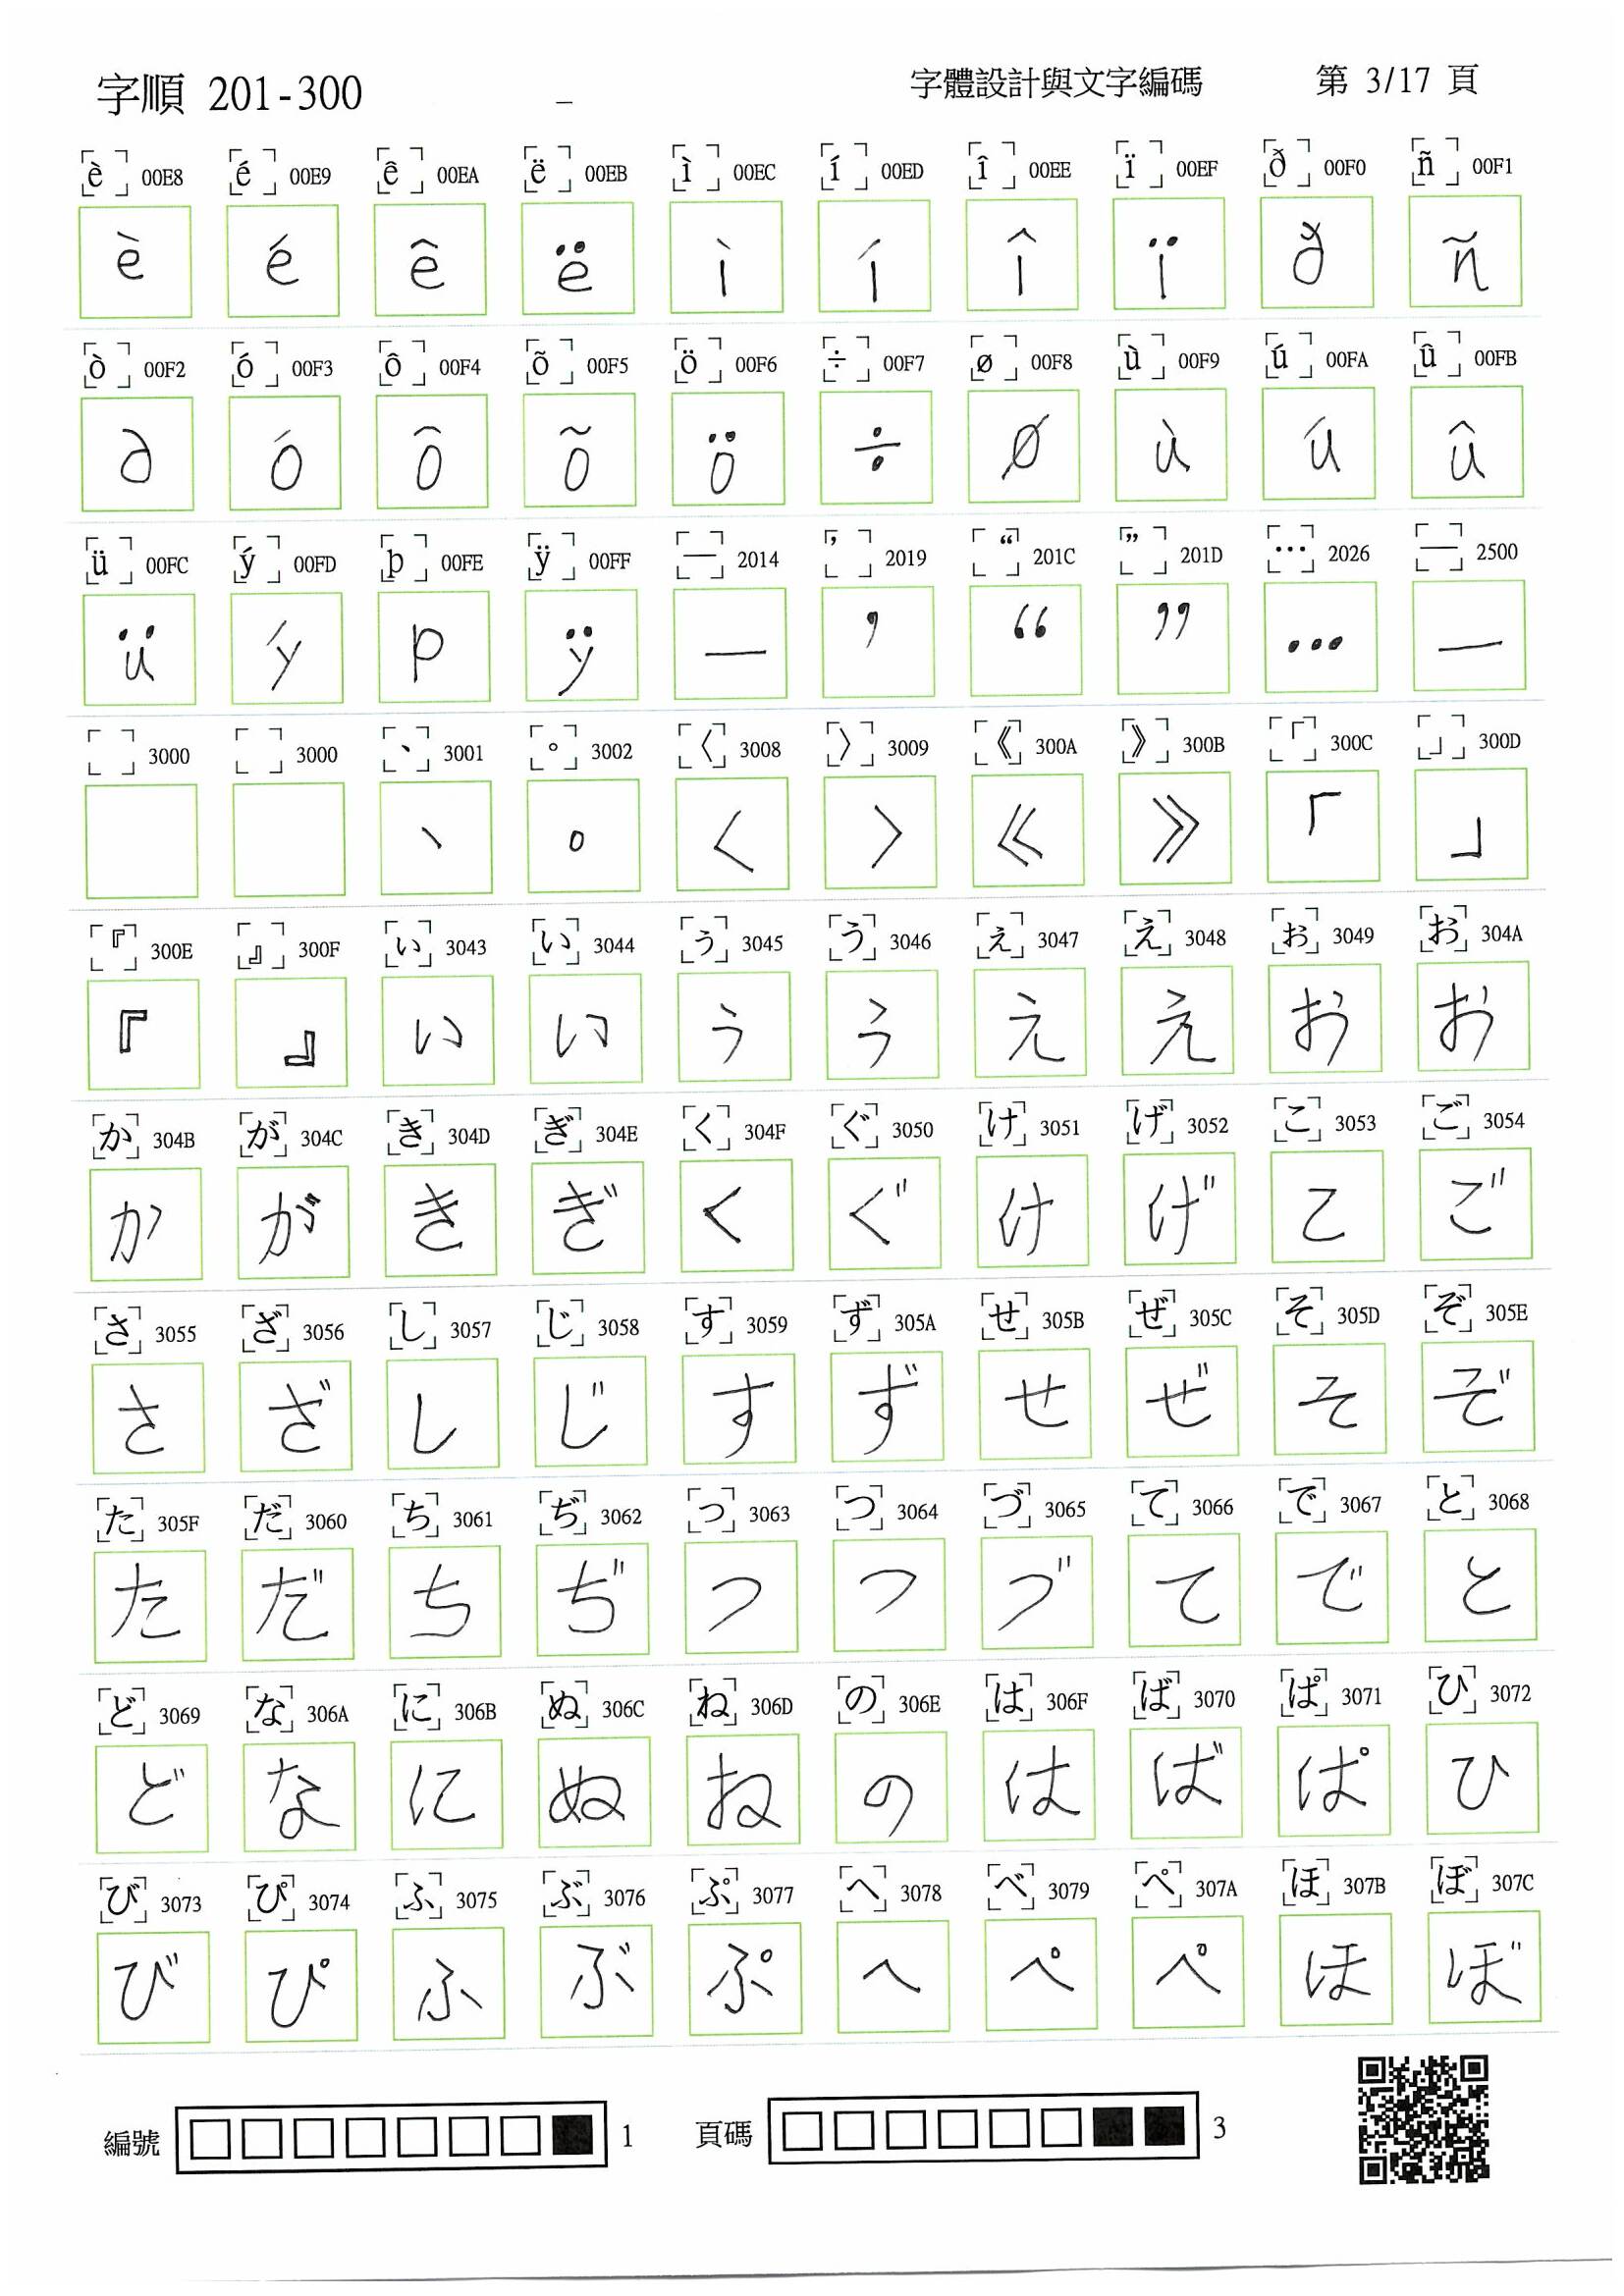 字順 201-300 – 字體設計與文字編碼 第 3/17 頁
è 00E8 é 00E9 ê 00EA ë 00EB ì 00EC í 00ED î 00EE ï 00EF ð 00F0 ñ 00F1
è é ê ë ì í î ï ð ñ
ò 00F2 ó 00F3 ô 00F4 õ 00F5 ö 00F6 ÷ 00F7 ø 00F8 ù 00F9 ú 00FA û 00FB
∂ ó ô õ ö ÷ ø ù ú û
ü 00FC ý 00FD þ 00FE ÿ 00FF — 2014 ’ 2019 “ 201C ” 201D … 2026 ─ 2500
ü ý p ÿ — ’ “ ” … ─
3000 3000 、 3001 。 3002 〈 3008 〉 3009 《 300A 》 300B 「 300C 」 300D
、 。 〈 〉 《 》 「 」
『 300E 』 300F ぃ 3043 い 3044 ぅ 3045 う 3046 ぇ 3047 え 3048 ぉ 3049 お 304A
『 』 ぃ い ぅ う ぇ え ぉ お
か 304B が 304C き 304D ぎ 304E く 304F ぐ 3050 け 3051 げ 3052 こ 3053 ご 3054
か が き ぎ く ぐ け げ こ ご
さ 3055 ざ 3056 し 3057 じ 3058 す 3059 ず 305A せ 305B ぜ 305C そ 305D ぞ 305E
さ ざ し じ す ず せ ぜ そ ぞ
た 305F だ 3060 ち 3061 ぢ 3062 っ 3063 つ 3064 づ 3065 て 3066 で 3067 と 3068
た だ ち ぢ っ つ づ て で と
ど 3069 な 306A に 306B ぬ 306C ね 306D の 306E は 306F ば 3070 ぱ 3071 ひ 3072
ど な に ぬ ね の は ば ぱ ひ
び 3073 ぴ 3074 ふ 3075 ぶ 3076 ぷ 3077 へ 3078 べ 3079 ぺ 307A ほ 307B ぼ 307C
び ぴ ふ ぶ ぷ へ ぺ ぺ ほ ぼ
編號 1 頁碼 3